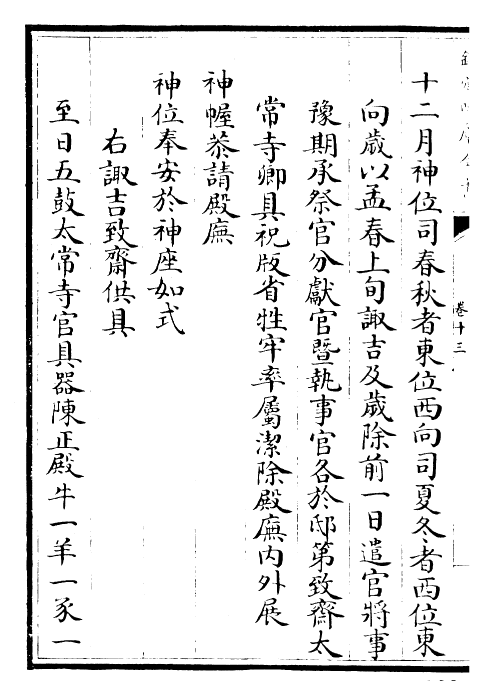 卷十三
十二月神位司春秋者東位西向司夏冬者西位東
向歲以孟春上旬諏吉及歲除前一日遣官將事
豫期承祭官分獻官暨執事官各於邸第致齋太
常寺卿具祝版省牲牢率屬潔除殿廡內外展
神幄恭請殿廡
神位奉安於神座如式
右諏吉致齋供具
至日五鼓太常寺官具器陳正殿牛一羊一豕一